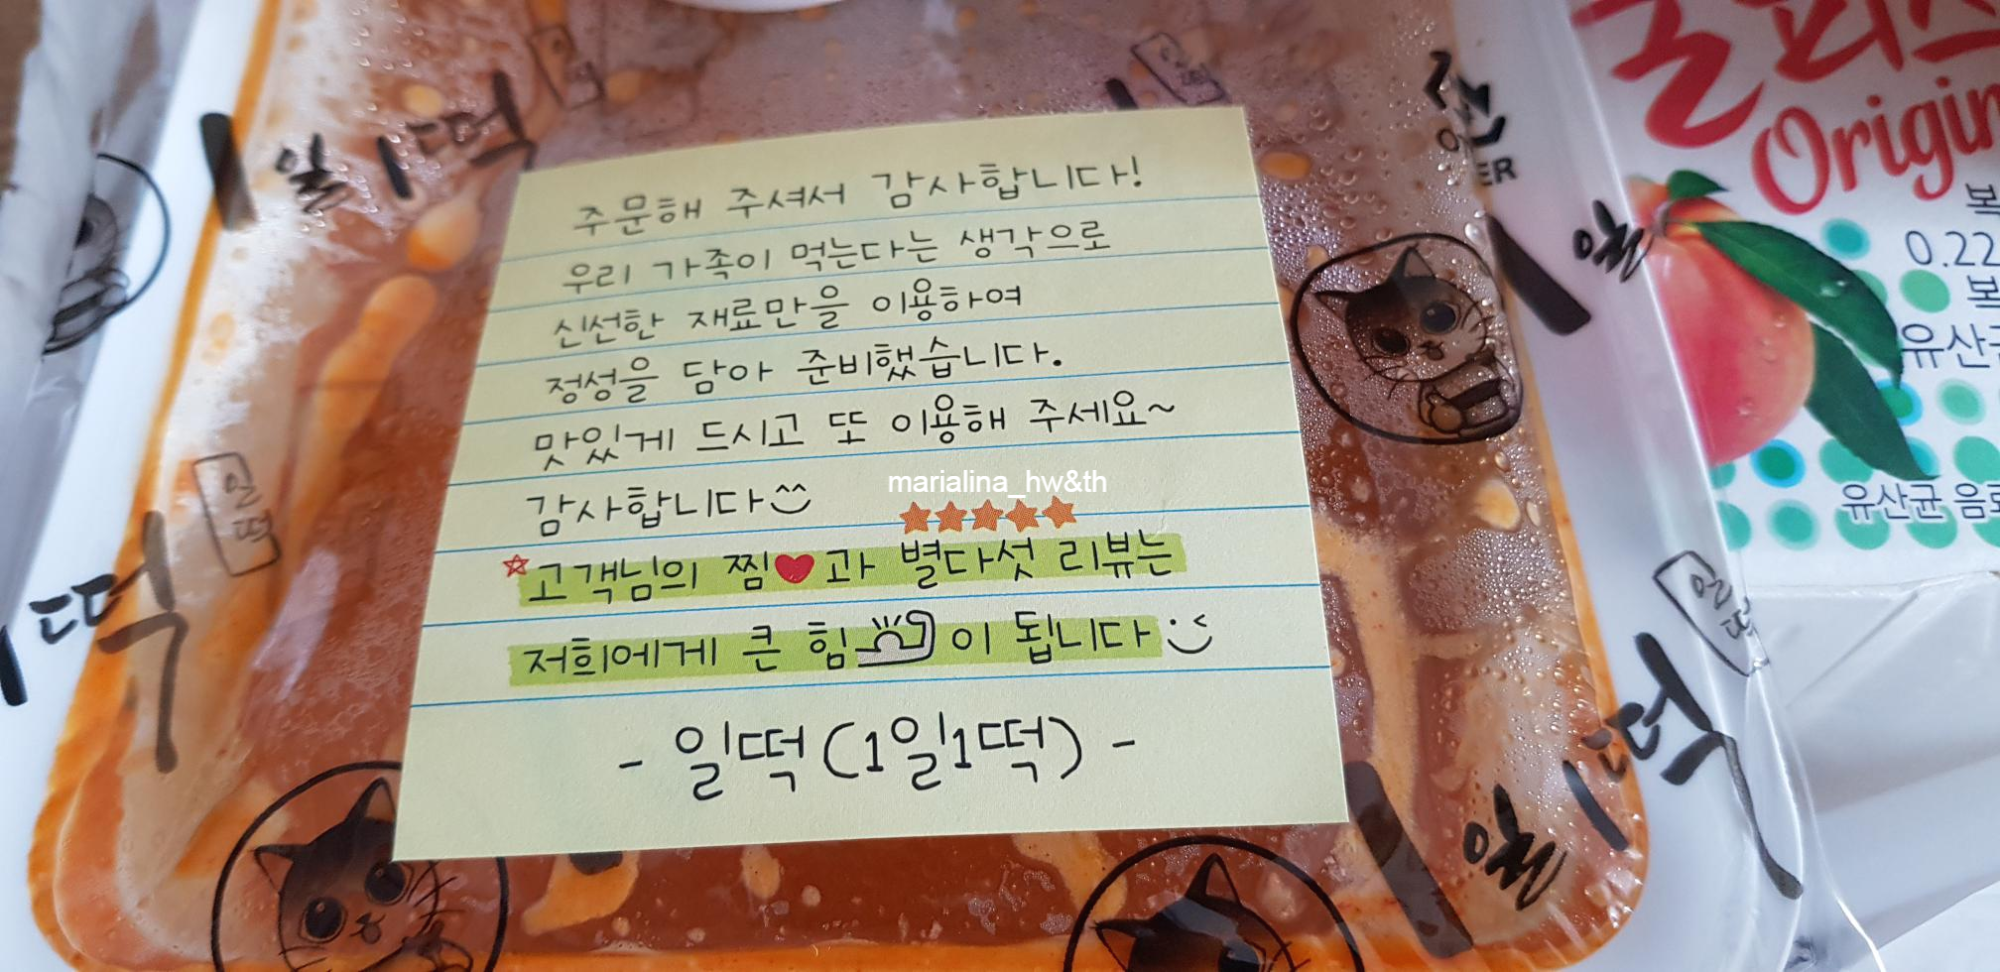 주문해 주셔서 감사합니다!
우리 가족이 먹는다는 생각으로
신선한 재료만을 이용하여
정성을 담아 준비했습니다.
맛있게 드시고 또 이용해 주세요~
감사합니다^^
marialina_hw&th
★★★★★
☆고객님의 찜♥과 별다섯 리뷰는
저희에게 큰 힘이 됩니다
- 일떡(1일1떡) -
1일1떡
일떡
쿨피스
Origin
복
0.22
복
유산균
유산균 음료